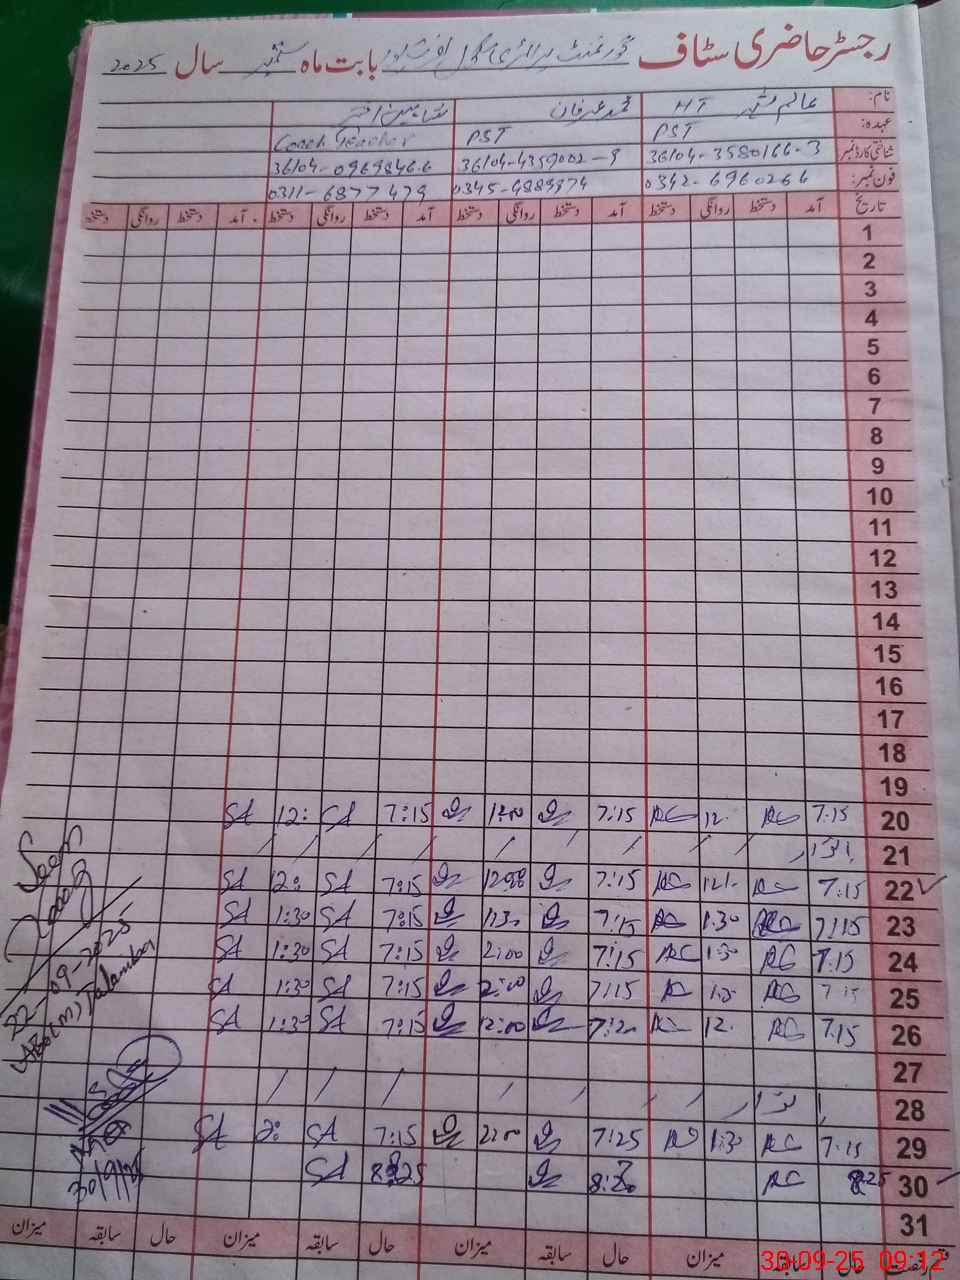 رجسٹر حاضری سٹاف گورنمنٹ پرائمری سکول بابت ماہ ستمبر سال 2025
نام: HT محمد عرفان
عہدہ: PST PST Coach Teacher
شناختی کارڈ نمبر 36104-3580166-3 36104-4359002-9 36104-0969846.6
فون نمبر: 0342-6960264 0345-4889974 0311-6877479
تاریخ آمد دستخط روانگی دستخط آمد دستخط روانگی دستخط آمد دستخط روانگی دستخط آمد دستخط روانگی دستخط
1
2
3
4
5
6
7
8
9
10
11
12
13
14
15
16
17
18
19
20 7:15 AG 12: 7:15 12:00 7:15 SA 12: SA
21 اتوار
22 7:15 AG 12: AG 7:15 7:15 SA 12: SA
23 7:15 1:30 AG 7:15 1:30 7:15 SA 1:30 SA
24 7:15 AG 1:30 AG 7:15 2:00 7:15 SA 1:30 SA
25 7:15 AG AG 7:15 2:00 7:15 SA 1:30 SA
26 7:15 AG 12. AG 7:20 12:00 7:15 SA 1:30 SA
27
28 اتوار
29 7:15 AG 1:30 7:25 2:00 7:15 SA 2: SA
30 8:25 AG 8:20 8:25 SA
31
حال سابقہ میزان حال سابقہ میزان حال سابقہ میزان حال سابقہ میزان
Seen
22-09-2025
30/9/25
30-09-25 09:12